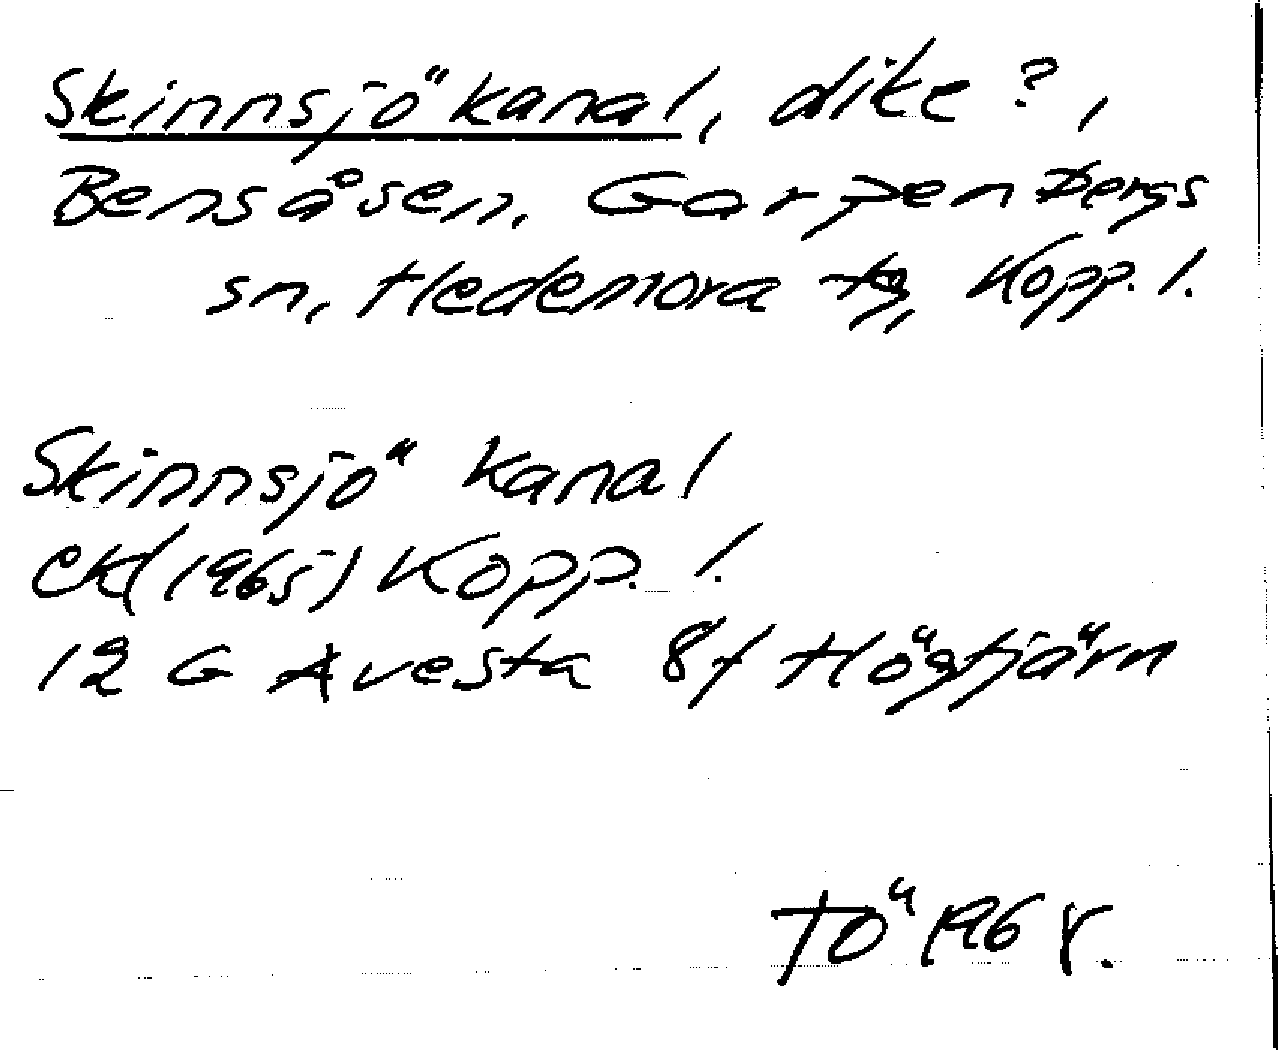 Skinnsjö kanal, dike?,
Bensåsen, Garpenbergs
sn, Hedemora tg, Kopp. l.
Skinnsjö kanal
ek (1965) Kopp. l.
12 G Avesta 8f Högtjärn
TÖ 196